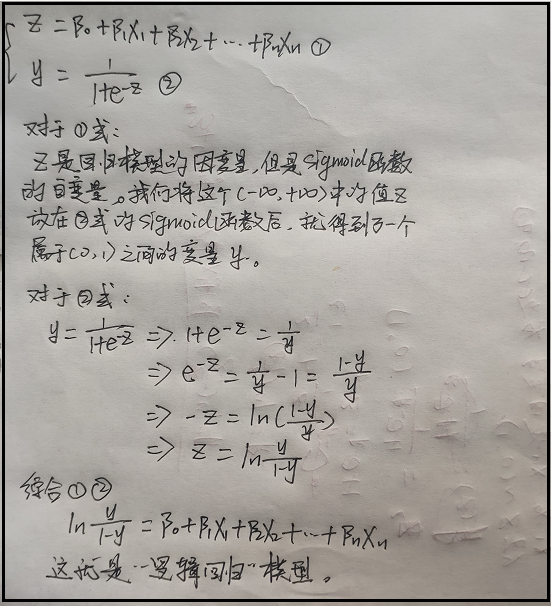 z = β₀+β₁X₁+β₂X₂+…+βₙXₙ ①
y = 1/(1+e^(-z)) ②
对于①式:
z是回归模型的因变量,但是sigmoid函数
的自变量。我们将这个(-∞,+∞)中的值z
放在②式的sigmoid函数后,就得到了一个
属于(0,1)之间的变量y。
对于②式:
y = 1/(1+e^(-z)) => 1+e^(-z) = 1/y
=> e^(-z) = 1/y - 1 = (1-y)/y
=> -z = ln((1-y)/y)
=> z = ln y/(1-y)
综合①②
ln y/(1-y) = β₀+β₁X₁+β₂X₂+…+βₙXₙ
这就是“逻辑回归”模型。